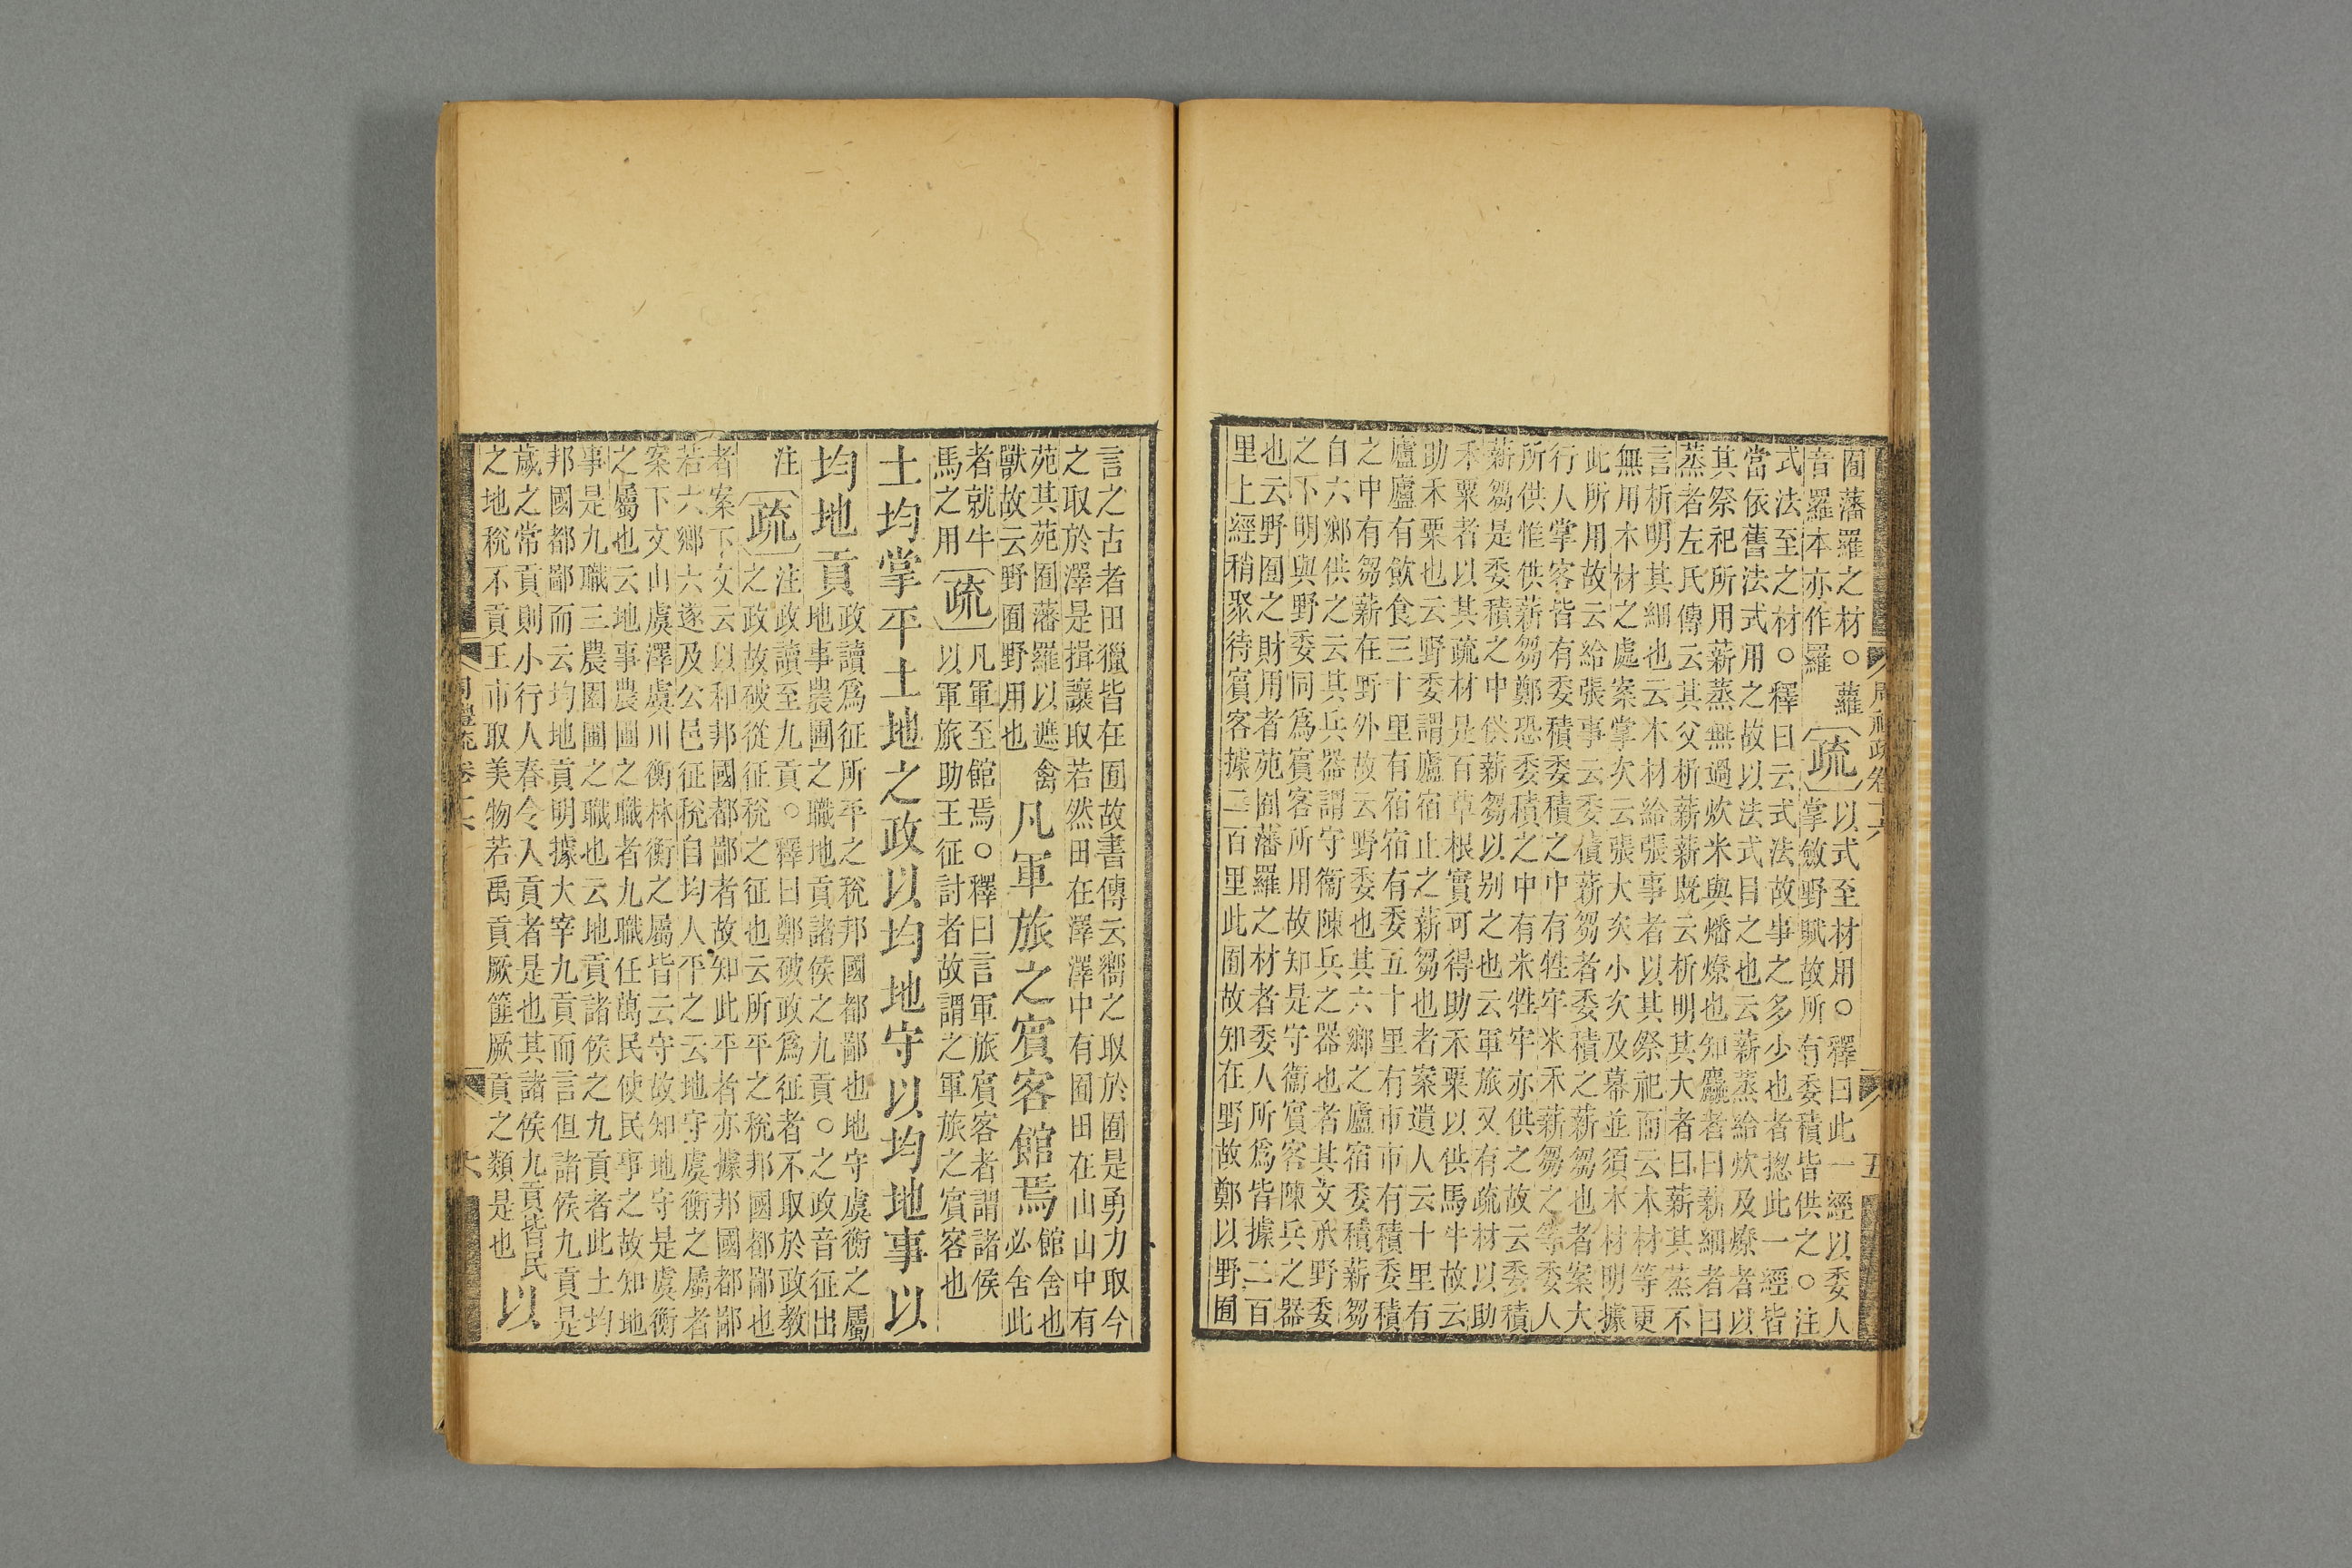 囿藩羅之材○蘿
音羅本亦作羅
疏
以式至材用○釋曰此一經以委人
掌斂野賦故所有委積皆供之○注
式法至之材○釋曰云式法故事之多少也者揔此一經皆
當依舊法式用之故以法式目之也云薪蒸給炊及燎者以
其祭祀所用薪蒸無過炊米與燔燎也知麤者曰薪細者曰
蒸者左氏傳云其父析薪薪既云析明其大者曰薪其蒸不
言析明其細也云木材給張事者以其祭祀而云木材等更
無用木材之處案掌次云張大次小次及幕並須木材明據
此所用故云給張事云委積薪芻者委積之薪芻也者案大
行人掌客皆有委積委積之中有牲牢米禾薪芻之等委人
所供惟供薪芻鄭恐委積之中有米牲牢亦供之故云委積
薪芻是委積之中供薪芻以别之也云軍旅又有疏材以助
禾粟者以其疏材是百草根實可得助禾粟以供馬牛故云
助禾粟也云野委謂廬宿止之薪芻也者案遺人云十里有
廬廬有飲食三十里有宿宿有委五十里有市市有積委積
之中有芻薪在野外故云野委也其六鄉之廬宿委積薪芻
自六鄉供之云其兵器謂守衞陳兵之器也者其文承野委
之下明與野委同爲賓客所用故知是守衞賓客陳兵之器
也云野囿之財用者苑囿藩羅之材者委人所爲皆據二百
里上經稍聚待賓客據二百里此囿故知在野故鄭以野囿
言之古者田獵皆在囿故書傳云嚮之取於囿是勇力取今
之取於澤是揖讓取若然田在澤澤中有囿田在山山中有
苑其苑囿藩羅以遮禽
獸故云野囿野用也
凡軍旅之賓客館焉
館舍也
必舍此
者就牛
馬之用
疏
凡軍至館焉○釋曰言軍旅賓客者謂諸侯
以軍旅助王征討者故謂之軍旅之賓客也
土均掌平土地之政以均地守以均地事以
均地貢
政讀爲征所平之稅邦國都鄙也地守虞衡之屬
地事農圃之職地貢諸侯之九貢○之政音征出
注
疏
注政讀至九貢○釋曰鄭破政爲征者不取於政教
之政故破從征稅之征也云所平之稅邦國都鄙也
者案下文云以和邦國都鄙者故知此平者亦據邦國都鄙
若六鄉六遂及公邑征稅自均人平之云地守虞衡之屬者
案下文山虞澤虞川衡林衡之屬皆云守故知地守是虞衡
之屬也云地事農圃之職者九職任萬民使民事之故知地
事是九職三農園圃之職也云地貢諸侯之九貢者此土均
邦國都鄙而云均地貢明據大宰九貢而言但諸侯九貢是
歲之常貢則小行人春令入貢者是也其諸侯九貢皆民
之地稅不貢王市取美物若禹貢厥篚厥貢之類是也
以